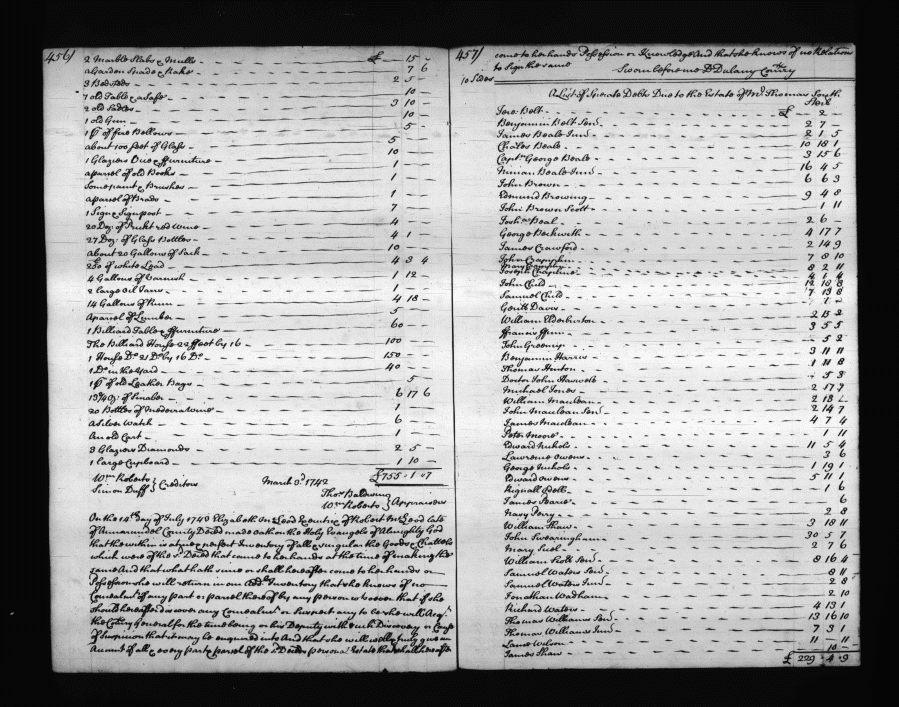 456/
2 Marble Slabs & Mulls - £ - 15 -
a Garden Spade & Rake - 7 6
3 Bedsteds - 2 5 -
7 old Tables & a Safe - 10 -
2 old Sadles - 3 10 -
1 old Gun - 10 -
1 pr. of fire Bellows - 5 -
about 100 feet of Glass - 5
1 Glaziers Vice & ffurniture - 10 -
a parcel of old Books - 1 -
Some paint & Brushes - 1 -
a parcel of Brads -
1 Sign & Signpost - 1
20 Doz: of Red Wine - 7
27 Doz: of Glass Bottles - 4
about 20 Gallons of Sack - 4 1 -
of white Lead - 10
4 Gallons of Varnish - 4 3 4
2 large Oil Jarrs - 1 12 -
14 Gallons of Rum - 1
A parcel of Lumber - 4 18 -
1 Billiard Table & ffurniture - 5
The Billiard House 22 ffoot by 16 - 60
1 House Do. 21 Do by 16 Do. - 100
1 Do. in the Yard - 150 -
1 pr. of old Leather Bags - 40 -
of Sinabar - 5
20 Bottles of Medeira Wine - 6 17 6
a Silver Watch - 1
An old Cart - 6
3 Glaziers Diamonds - 1
1 large Cupboard - 2 5 -
1 10 -
£755 . 1 . 7
Wm. Roberts
Simon Duff } Creditors
March 3d. 1742
Thos. Baldwing
Wm. Roberts } Appraisers
On the 14th day of July 1743 Elizabeth McLeod Executrix of Robert McLeod late
of Annarundel County Deced made oath on the Holy Evangels of Almighty God
that the within is a true & perfect Inventory of all & singular the Goods & Chattels
which were of the sd. Deced that came to her hands at the time of making the
same And that what hath since or shall hereafter come to her hands or
Possession she will return in an Addl. Inventory that she knows of no
Concealmt. of any part or parcel thereof by any person whatsoever that if she
should hereafter discover any Concealmt. or suspect any to be she will Acqt.
the Comry. General for the time being or his Deputy with such Discovery or Cause
of Suspicion that it may be enquired into And that she will well & truly give an
Account of all & every part & parcel of the sd. Deceds personal Estate that shall hereafter
457/
come to her hands Possession or Knowledge And that she knows of no Relation
to Sign the same
Sworn before me D Dulany Comry.
10 Sides
A List of Sperate Debts Due to the Estate of Mr. Thomas
Jere: Belt - £ - 2 -
Benjamin Belt Senr. - 2 7 -
James Beale Junr. - 2 1 5
Charles Beale - 10 18 1
Captn. George Beale - 3 15 6
Ninian Beale Junr. - 16 4 5
John Brown - 6 6 3
Edmund Browing - 9 4 8
John Brown Scott - 1 11
Joshua Beal - 2 6 -
George Beckwith - 4 17 7
James Crawford - 2 14 9
7 8 10
8 2 11
Joseph Chapline - 4 1 4
John Child - 12 10 8
Samuel Child - 7 13 8
Davis - 1 -
William Elderburton - 2 15 2
ffrancis ffinn - 3 5 5
John Greenup - 5 2
Benjamin Harris - 3 11 11
Thomas Hinton - 1 11 8
Doctor John Haswell - 5 3
Michael Jones - 2 17 7
William Maccloan - 2 18
John Maccloan Senr. - 2 14 7
James Maccloan - 4 7 4
Peter Moore - 1 11
Edward Nichols - 11 5 4
Lawrence Owens - 3 6
George Nichols - 1 19 1
Edward Owens - 5 11 1
Rignall Odell - 1 6
James Pearce - 6
Navy Perry - 2 8
William Shaw - 3 18 11
John Swearingham - 30 5 7
Mary - 2 7 6
William Scott Senr. - 8 16 4
Samuel Waters Senr. - 9 11
Samuel Waters Junr. - 2 8
Jonathan Wadham - 2 10
Richard Waters - 4 13 1
Thomas Williams Senr. - 13 16 10
Thomas Williams Junr. - 7 3 1
Lance Wilson - 11 - 11
James Shaw - 10 -
£ 229 . 4 . 9